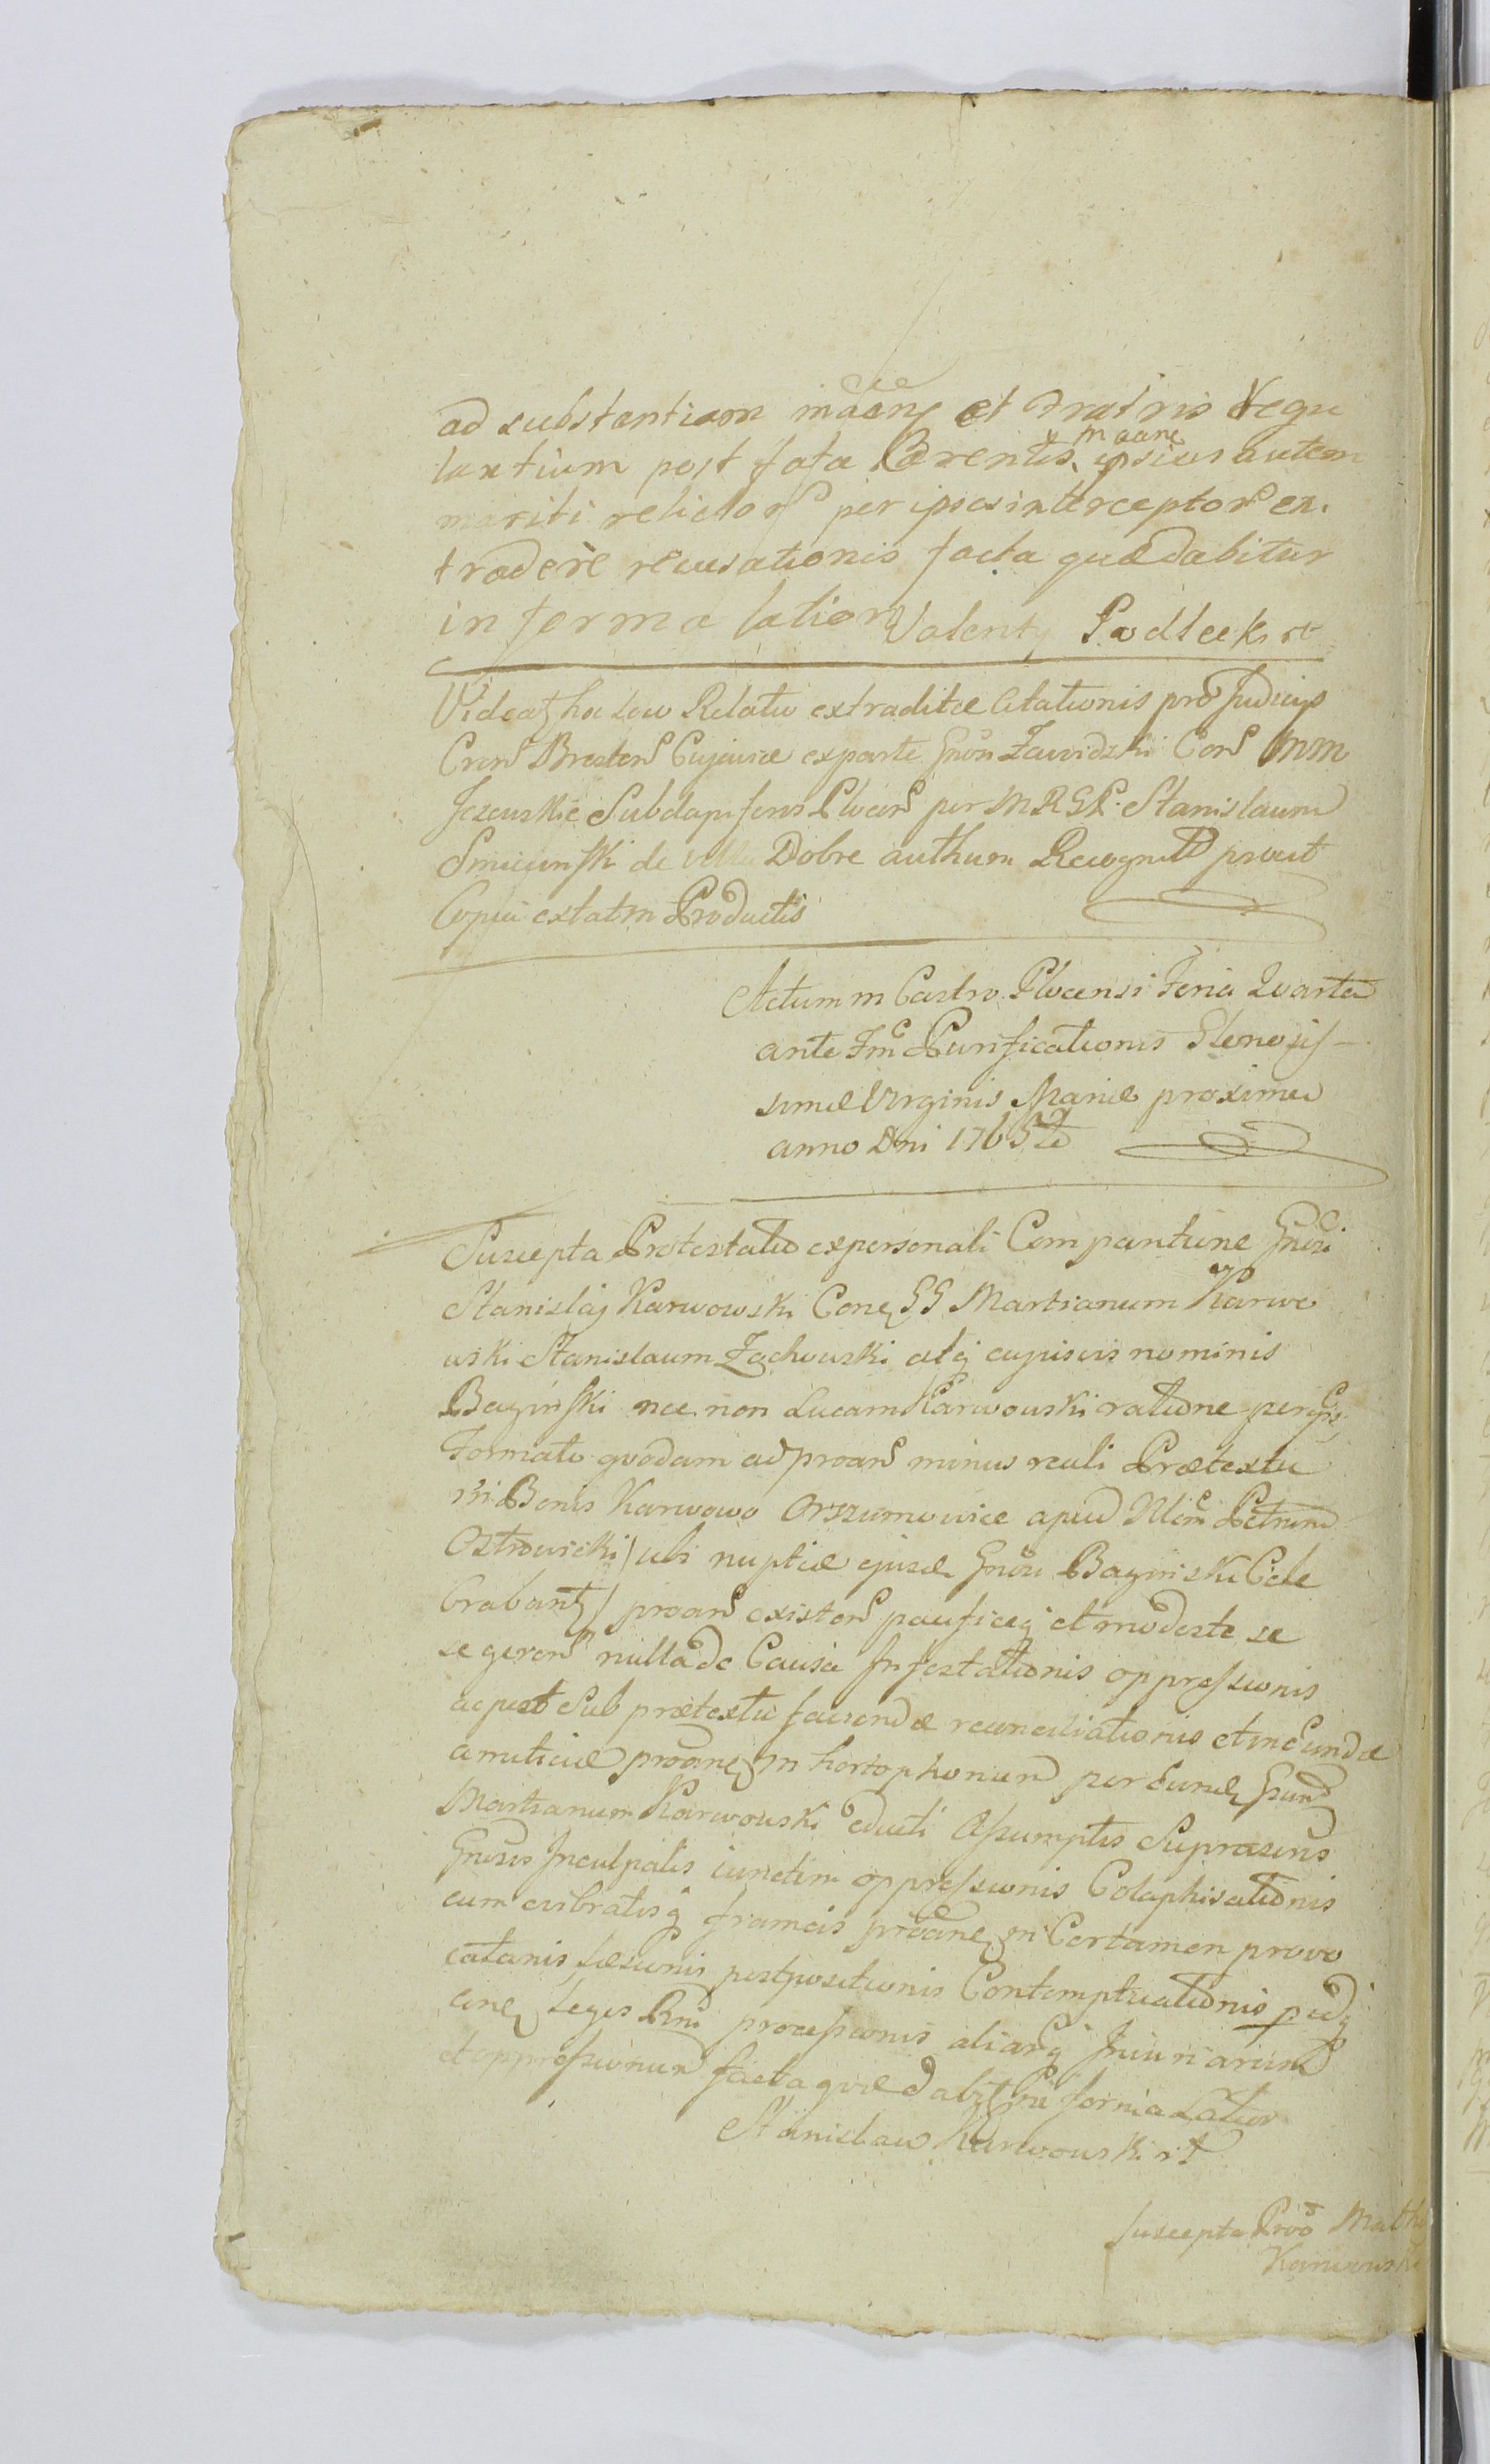 ad substantiam et fratris Regu
lantium post fata Parentis, ipsius autem
mariti relictor per ipsos interceptor ex.
tradere recusationis facta quæ dabitur
in forma latiori Valenty Podlecki
Videatz hoc loco Relatio extraditæ Citationis pro Judicijs
Cren Bresten Cujaviæ ex parte Gnosi Zawidzki Con MM
Jezewskie Subdapiferos Plocen per MRGP. Stanislaum
Smiecinski de villa Dobre authum Recognit prout
Copia extat in Productis
Actum in Castro Plocensi Feria Quarta
ante Fm Purificationis Gloriosis-
simæ Virginis Mariæ proxima
anno Dni 1765to
Suscepta Protestatio ex personali Comparitione Gnosi
Stanislaj Karwowski Con GG Martianum Karwo
wski Stanislaum Zachowski alq cujusvis nominis
Baginski nec non Lucam Karwowski ratione per
Formato quodam ad proan minus reali Prætextu
in Bonis Karwowo Orszumowice apud Petrum
Ostrowicki / ubi nuptiæ ejusd Gnosi Baginski Cele
brabantz / proan existen pacificeq et modeste se
se geren nulla de Causa Infestationis oppressionis
ac post sub prætextu faciendæ reconciliationis et ineundæ
amiticiæ proane in hortophonum per Eund Gsum
Martianum Karwowski educti Assumptis Suprascris
Gnosis Inculpatis iunctim oppressionis Colaphisationis
cum evibratisq frameis proane in Certamen provo
cationis læsionis postpositionis Contemptuationis
Legis Rni processionis aliarq Iniuriarum
et oppressionum facta quæ dabitur in forma Latior
Stanislaw Karwowski
Suscepta Pro Math
Karwowski